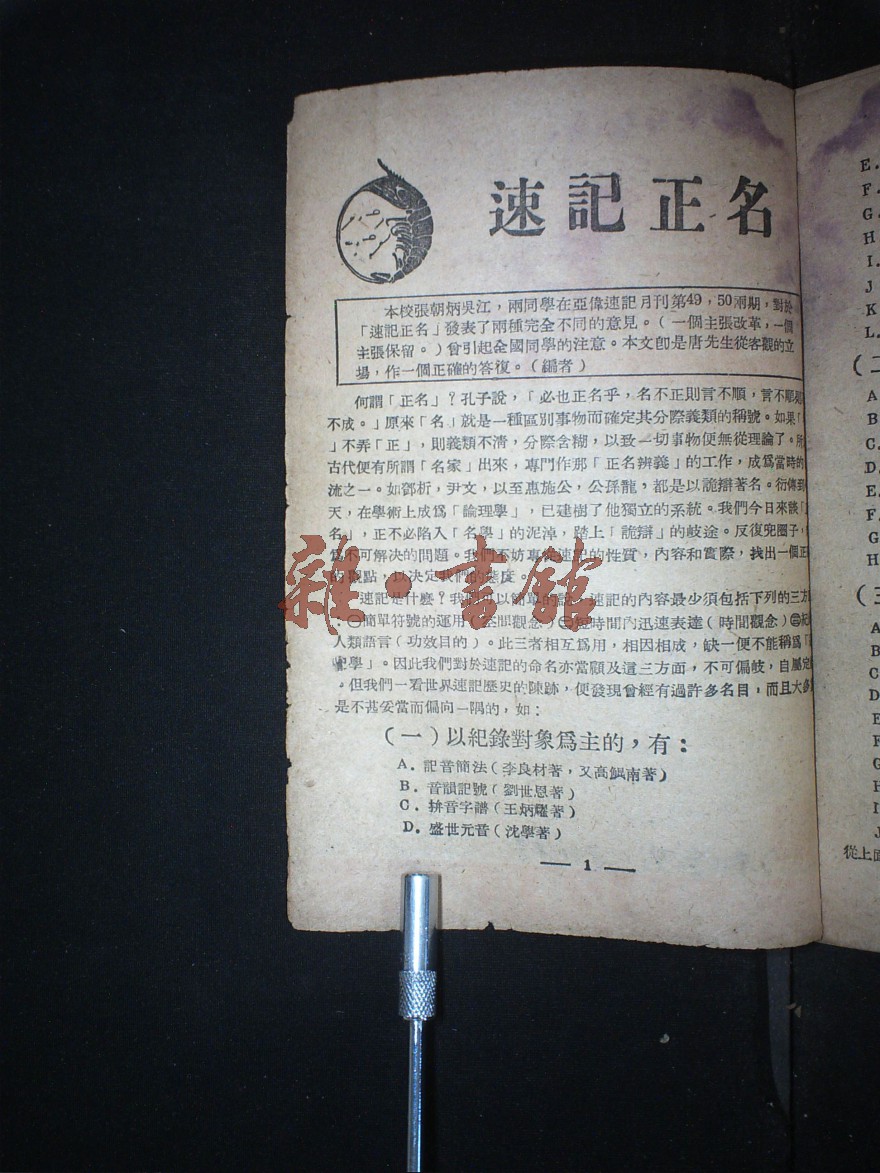 速記正名
本校張朝炳吳江，兩同學在亞偉速記月刊第49，50兩期，對於
「速記正名」發表了兩種完全不同的意見。（一個主張改革，一個
主張保留。）曾引起全國同學的注意。本文卽是唐先生從客觀的立
場，作一個正確的答復。（編者）
何謂「正名」？孔子說，「必也正名乎，名不正則言不順，言不順
不成。」原來「名」就是一種區別事物而確定其分際義類的稱號。如果「
」不弄「正」，則義類不清，分際含糊，以致一切事物便無從理論了。所
古代便有所謂「名家」出來，專門作那「正名辨義」的工作，成爲當時的
流之一。如鄧析，尹文，以至惠施公，公孫龍，都是以詭辯著名。衍傳到
天，在學術上成爲「論理學」，已建樹了他獨立的系統。我們今日來談「
名」，正不必陷入「名學」的泥淖，踏上「詭辯」的岐途。反復兜圈子，
爲不可解決的問題。我們不妨專從速記的性質，內容和實際，找出一個正
的觀點，以決定我們的態度。
速記是什麼？我們可以簡單的說，速記的內容最少須包括下列的三方
：㊀簡單符號的運用（空間觀念）㊁短時間內迅速表達（時間觀念）㊂
人類語言（功效目的）。此三者相互爲用，相因相成，缺一便不能稱爲「
學」。因此我們對於速記的命名亦當顧及這三方面，不可偏岐，自屬定
。但我們一看世界速記歷史的陳跡，便發現曾經有過許多名目，而且大多
是不甚妥當而偏向一隅的，如：
（一）以紀錄對象爲主的，有：
A．記音簡法（李良材著，又高鯤南著）
B．音韻記號（劉世恩著）
C．拚音字譜（王炳耀著）
D．盛世元音（沈學著）
— 1 —
E.
F.
G.
H
I.
J
K
L.
A
B
C.
D.
E.
F.
G
H
（三
A
B
C
D
E
F
G
H
I
J
從上面
雜·書館